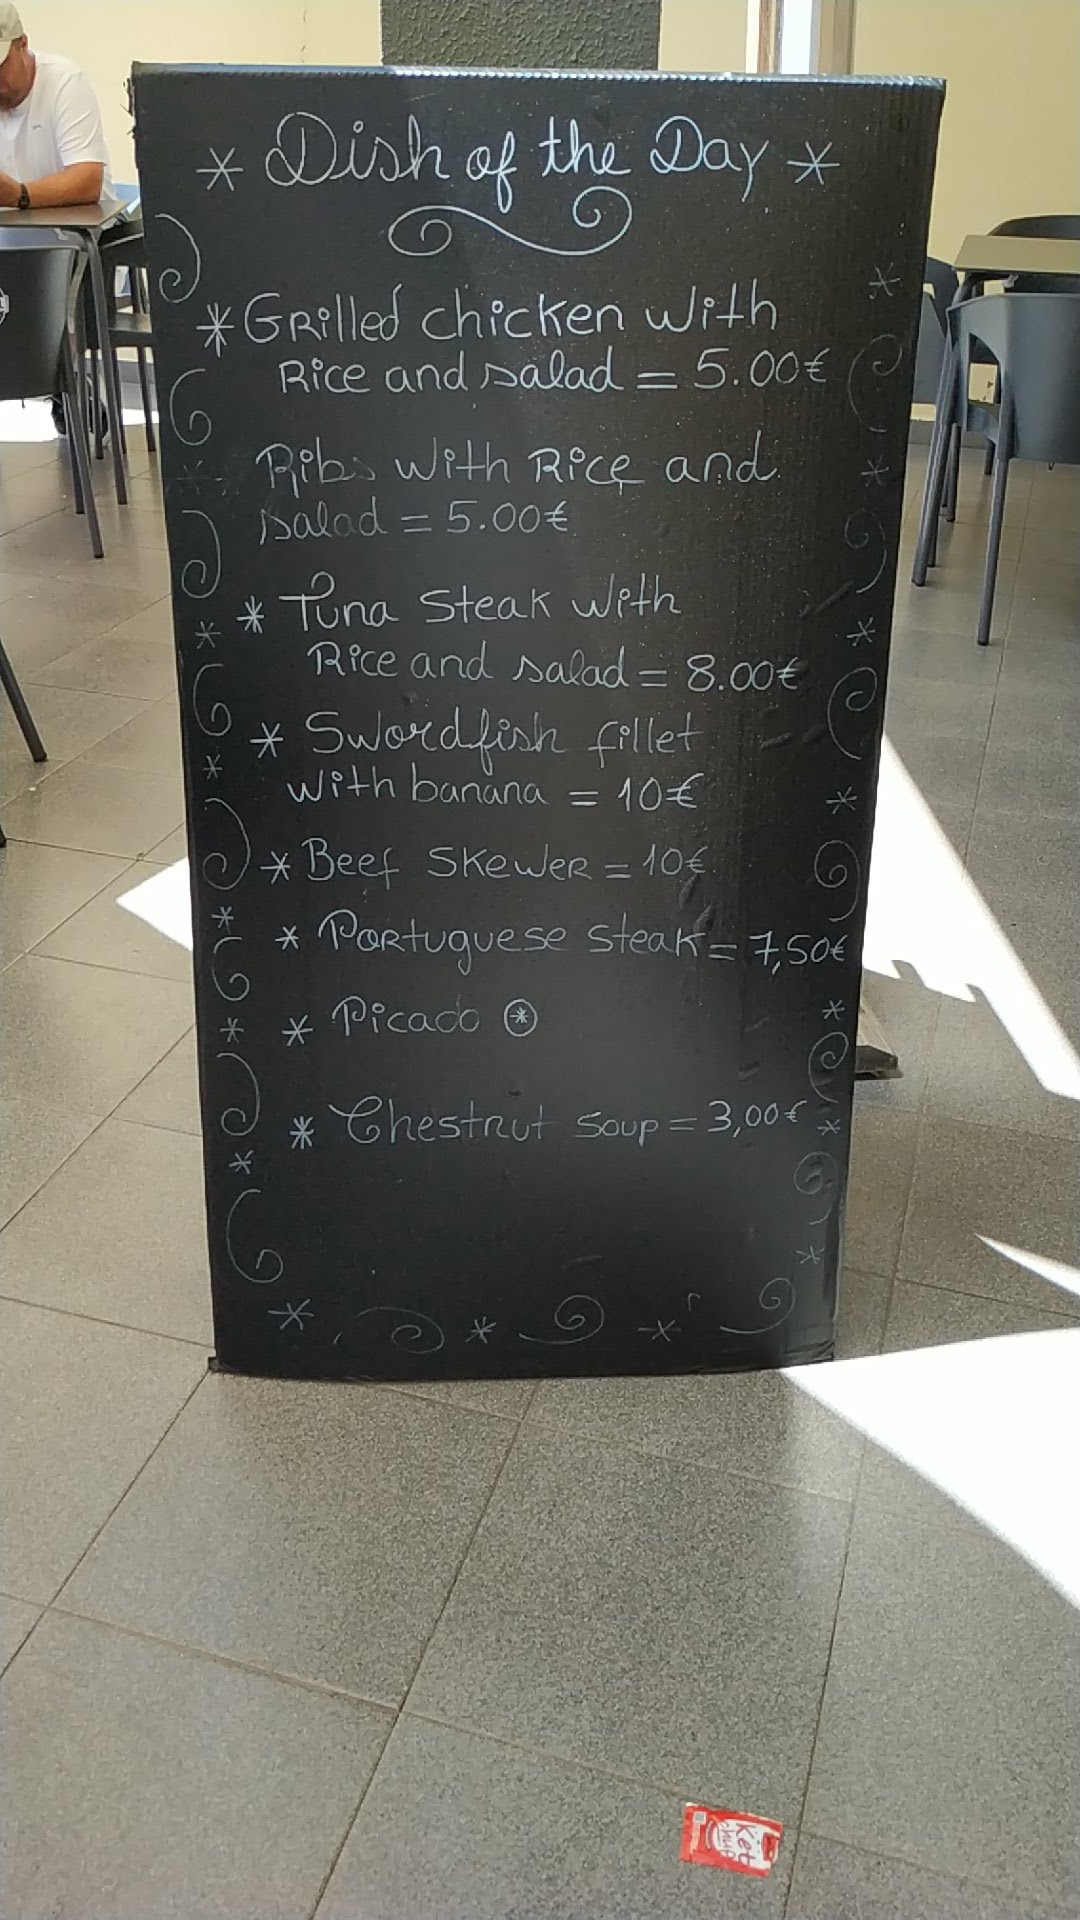 * Dish of the Day *
* Grilled chicken with
Rice and salad = 5.00€
Ribs with Rice and
salad = 5.00€
* Tuna Steak with
Rice and salad = 8.00€
* Swordfish fillet
with banana = 10€
* Beef Skewer = 10€
* Portuguese steak = 7,50€
* Picado
* Chestnut soup = 3,00€
Ket
chup